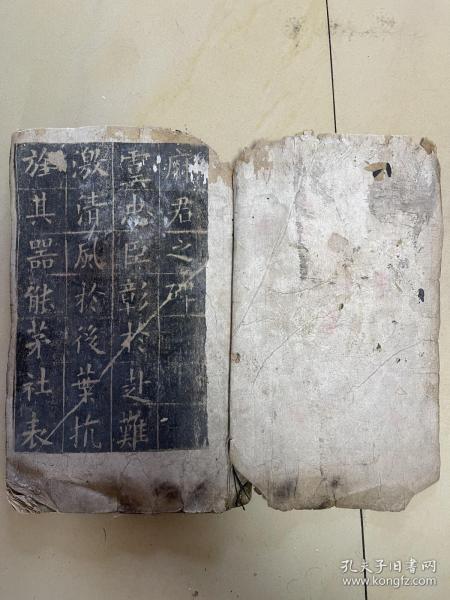 君之碑
雲忠臣彰於赴難
激清風於後葉抗
旌其器能茅社表
孔夫子旧书网
www.kongfz.com